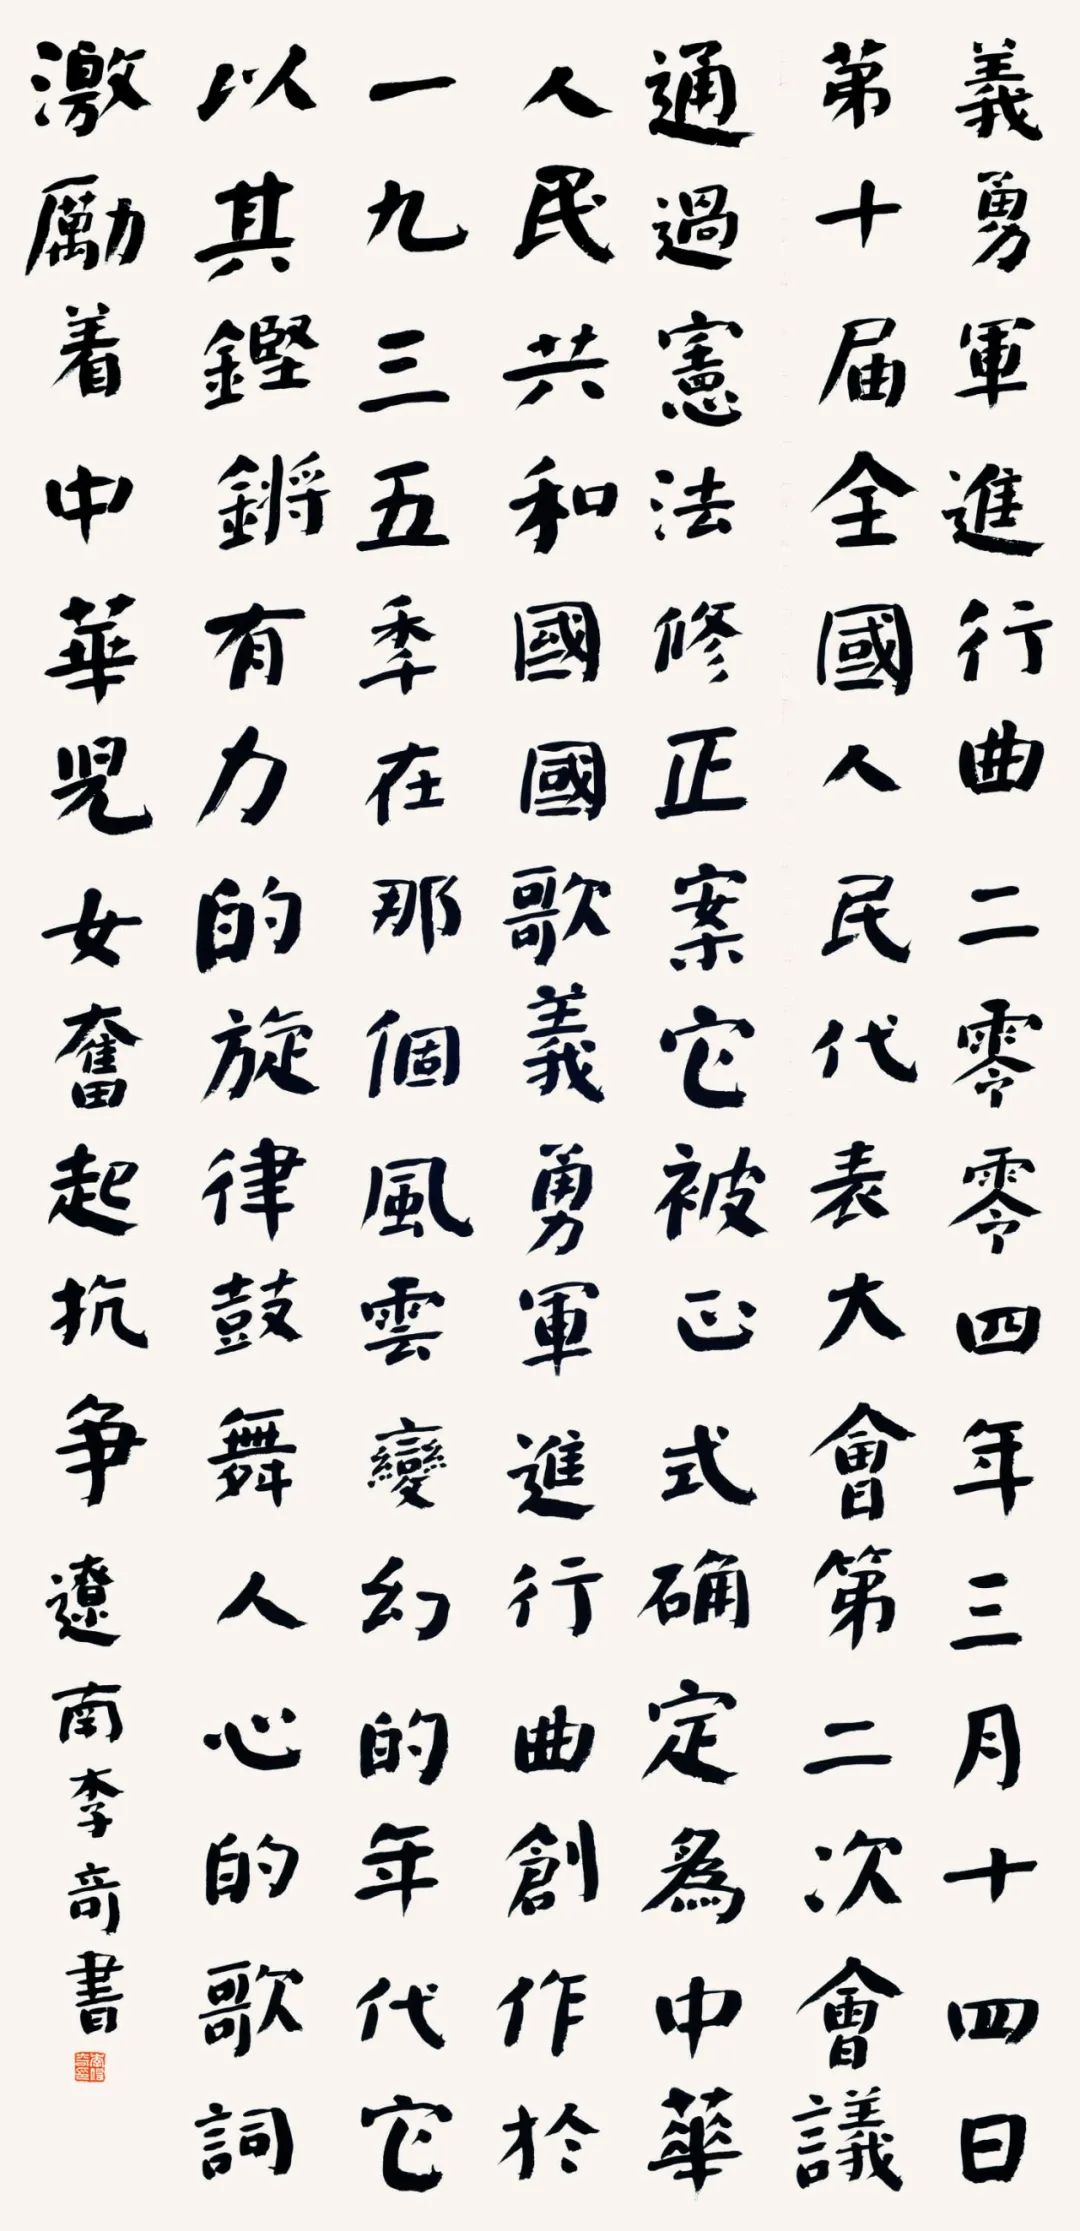 義勇軍進行曲二零零四年三月十四日
第十届全國人民代表大會第二次會議
通過憲法修正案它被正式确定為中華
人民共和國國歌義勇軍進行曲創作於
一九三五季在那個風雲變幻的年代它
以其鏗鏘有力的旋律鼓舞人心的歌詞
激勵着中華児女奮起抗争遼南李奇書